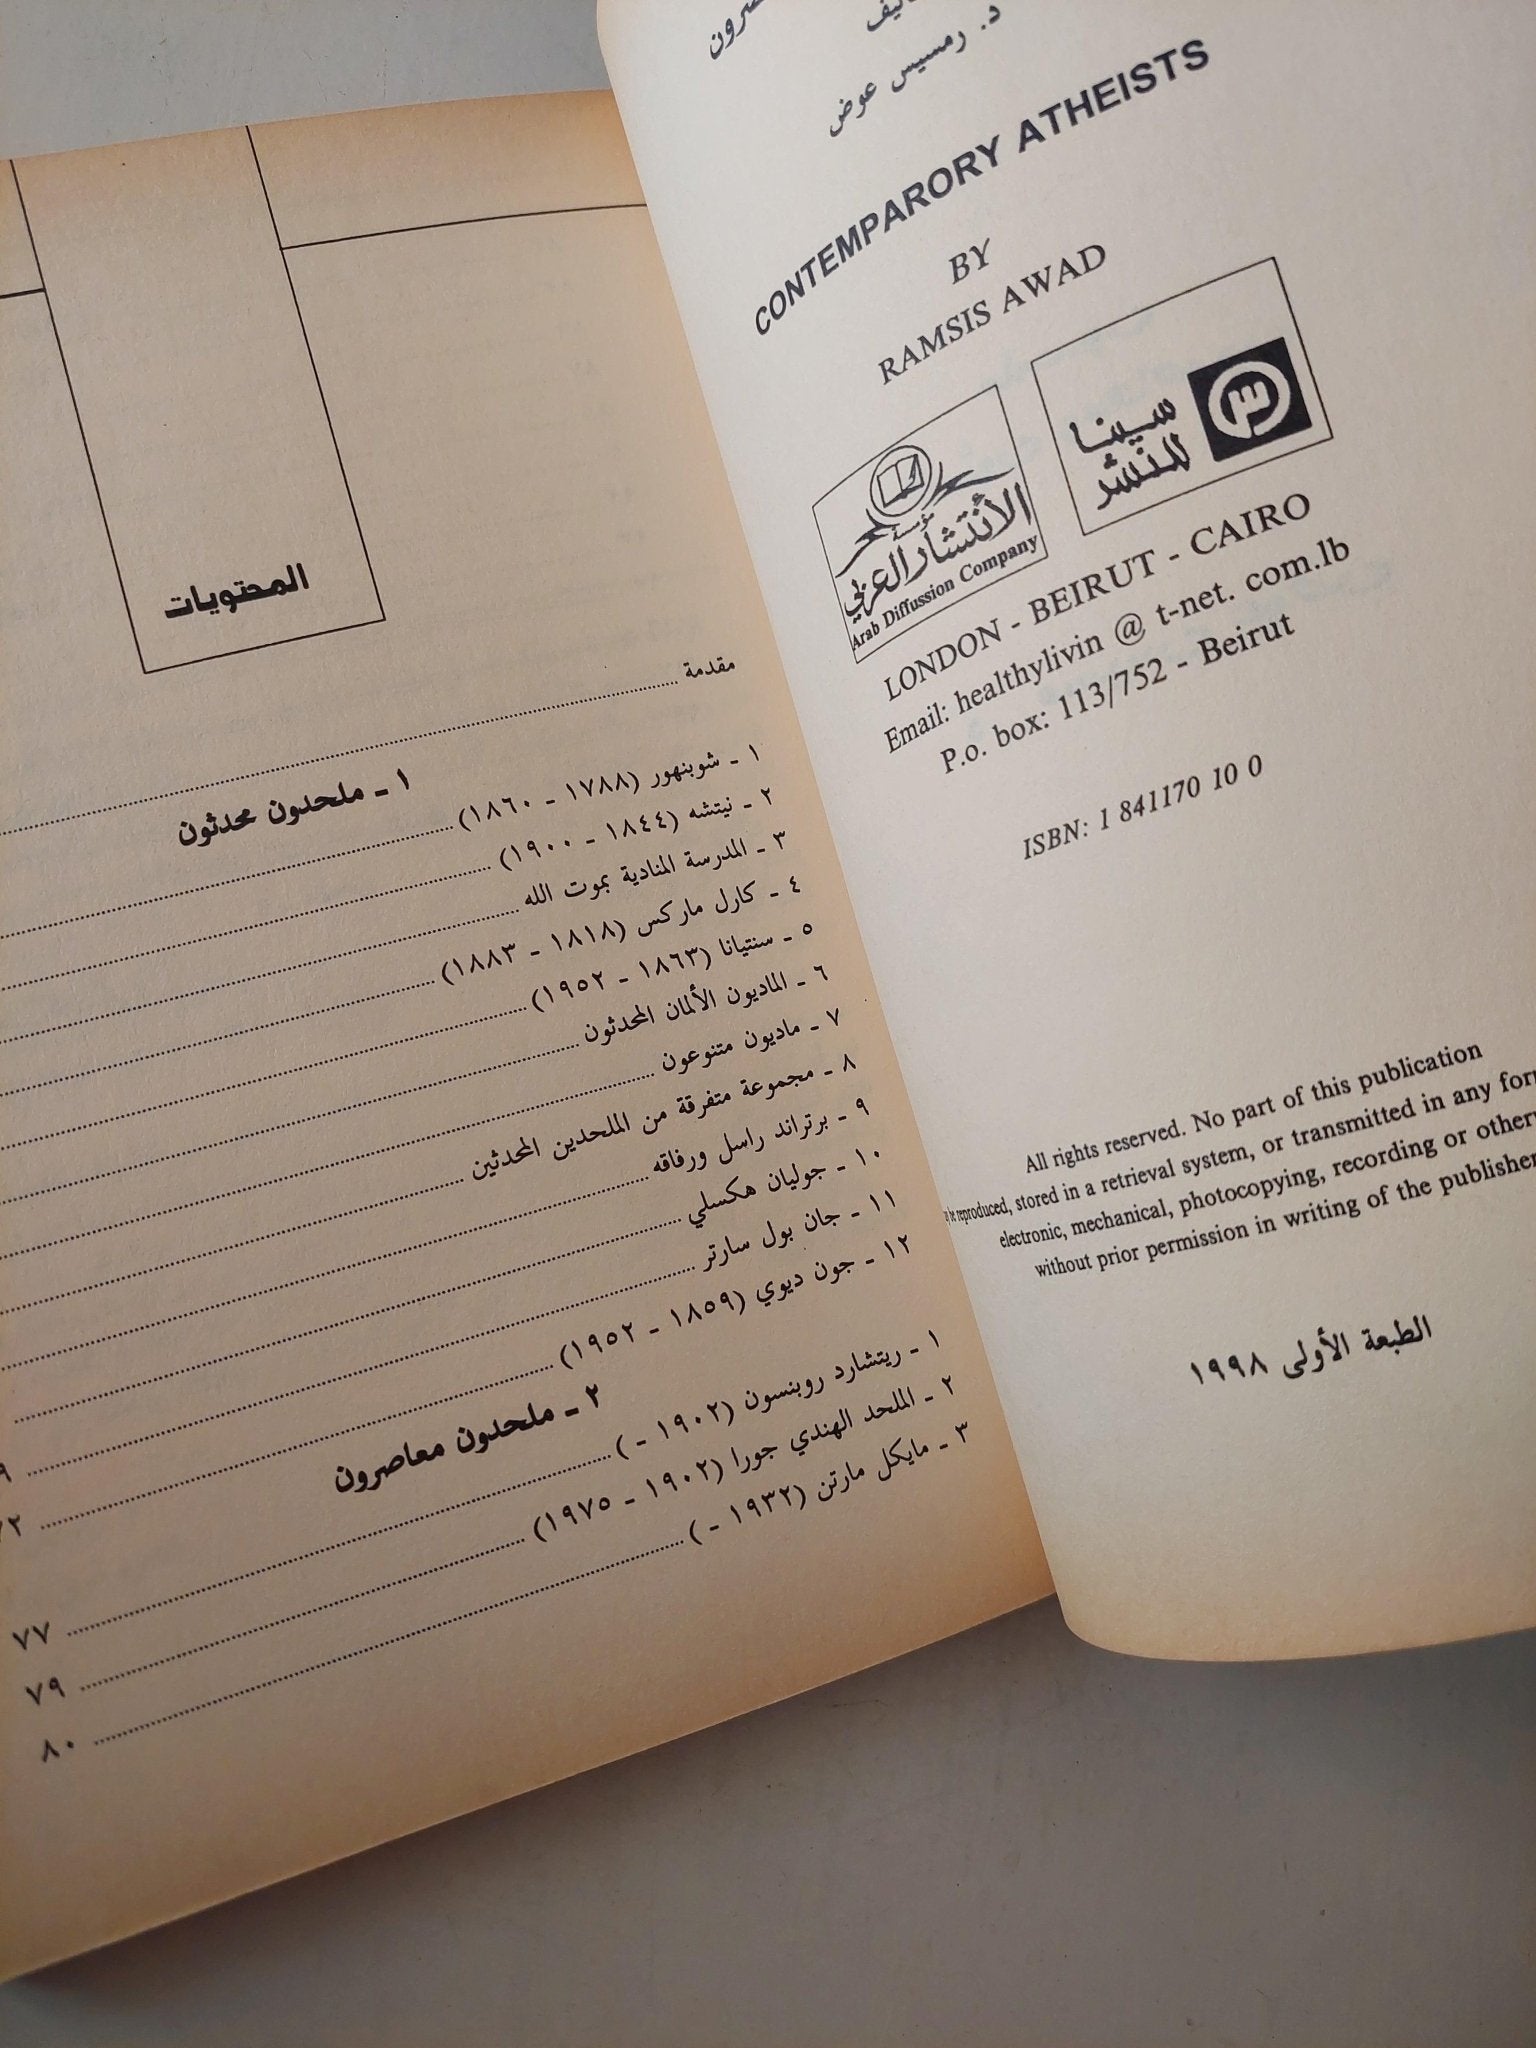 تأليف
د. رمسيس عوض
CONTEMPARORY ATHEISTS
BY
RAMSIS AWAD
سينا
للنشر
مؤسسة
الأنتشار العربي
Arab Diffussion Company
LONDON - BEIRUT - CAIRO
Email: healthylivin @ t-net. com.lb
P.o. box: 113/752 - Beirut
ISBN: 1 841170 10 0
All rights reserved. No part of this publication
be reproduced, stored in a retrieval system, or transmitted in any
electronic, mechanical, photocopying, recording or
without prior permission in writing of the publisher
الطبعة الأولى ١٩٩٨
المحتويات
مقدمة
١ ـ ملحدون محدثون
١ ـ شوبنهور (١٧٨٨ ـ ١٨٦٠)
٢ ـ نيتشه (١٨٤٤ ـ ١٩٠٠)
٣ ـ المدرسة المنادية بموت الله
٤ ـ كارل ماركس (١٨١٨ ـ ١٨٨٣)
٥ ـ سنتيانا (١٨٦٣ ـ ١٩٥٢)
٦ ـ الماديون الألمان المحدثون
٧ ـ ماديون متنوعون
٨ ـ مجموعة متفرقة من الملحدين المحدثين
٩ ـ برتراند راسل ورفاقه
١٠ ـ جوليان هكسلي
١١ ـ جان بول سارتر
١٢ ـ جون ديوي (١٨٥٩ ـ ١٩٥٢)
٢ ـ ملحدون معاصرون
١ ـ ريتشارد روبنسون (١٩٠٢ ـ ) ٧٧
٢ ـ الملحد الهندي جورا (١٩٠٢ ـ ١٩٧٥) ٧٩
٣ ـ مايكل مارتن (١٩٣٢ ـ ) ٨٠